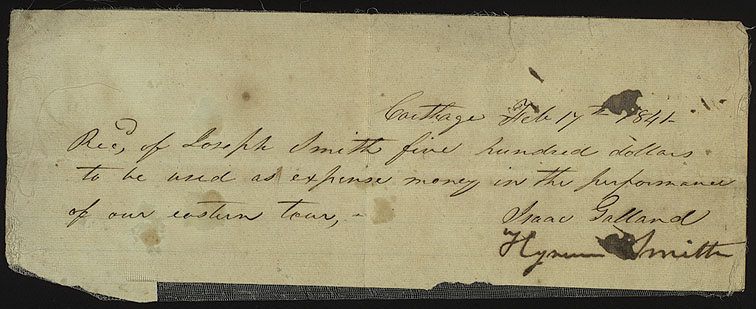 Carthage Feb 17th 1841-
Recd, of Joseph Smith five hundred dollars
to be used as expense money in the performance
of our eastern tour, -
Isaac Galland
Hyrum Smith